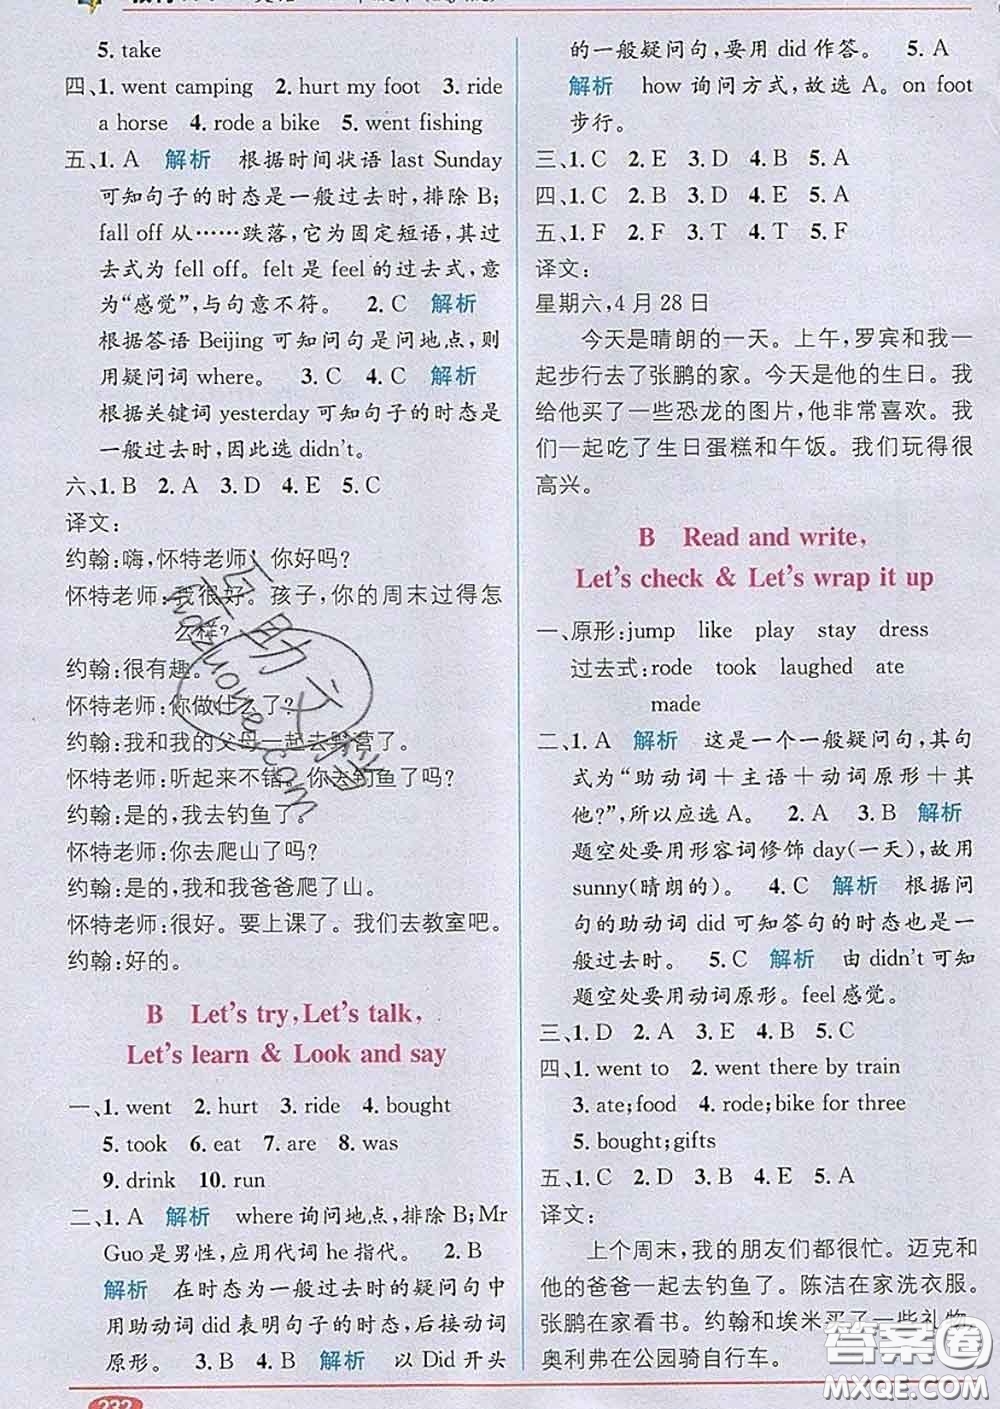 5. take
四、1. went camping 2. hurt my foot 3. ride
a horse 4. rode a bike 5. went fishing
五、1. A 解析 根据时间状语 last Sunday
可知句子的时态是一般过去时,排除 B;
fall off 从……跌落,它为固定短语,其过
去式为 fell off。felt 是 feel 的过去式,意
为“感觉”,与句意不符。 2. C 解析
根据答语 Beijing 可知问句是问地点,则
用疑问词 where。 3. C 4. C 解析
根据关键词 yesterday 可知句子的时态是
一般过去时,因此选 didn't。
六、1. B 2. A 3. D 4. E 5. C
译文:
约翰:嗨,怀特老师!你好吗?
怀特老师:我很好。孩子,你的周末过得怎
么样?
约翰:很有趣。
怀特老师:你做什么了?
约翰:我和我的父母一起去野营了。
怀特老师:听起来不错。你去钓鱼了吗?
约翰:是的,我去钓鱼了。
怀特老师:你去爬山了吗?
约翰:是的,我和我爸爸爬了山。
怀特老师:很好。要上课了。我们去教室吧。
约翰:好的。
B Let's try, Let's talk,
Let's learn & Look and say
一、1. went 2. hurt 3. ride 4. bought
5. took 6. eat 7. are 8. was
9. drink 10. run
二、1. A 解析 where 询问地点,排除 B;Mr
Guo 是男性,应用代词 he 指代。 2. B
解析 在时态为一般过去时的疑问句中
用助动词 did 表明句子的时态,后接动词
原形。 3. B 4. B 解析 以 Did 开头
232
的一般疑问句,要用 did 作答。 5. A
解析 how 询问方式,故选 A。on foot
步行。
三、1. C 2. E 3. D 4. B 5. A
四、1. C 2. B 3. D 4. E 5. A
五、1. F 2. F 3. T 4. T 5. F
译文:
星期六,4 月 28 日
今天是晴朗的一天。上午,罗宾和我一
起步行去了张鹏的家。今天是他的生日。我
给他买了一些恐龙的图片,他非常喜欢。我
们一起吃了生日蛋糕和午饭。我们玩得很
高兴。
B Read and write,
Let's check & Let's wrap it up
一、原形:jump like play stay dress
过去式:rode took laughed ate
made
二、1. A 解析 这是一个一般疑问句,其句
式为“助动词+主语+动词原形+其
他?”,所以应选 A。 2. A 3. B 解析
题空处要用形容词修饰 day(一天),故用
sunny(晴朗的)。 4. C 解析 根据问
句的助动词 did 可知答句的时态也是一
般过去时。 5. C 解析 由 didn't 可知
题空处要用动词原形。feel 感觉。
三、1. D 2. A 3. E 4. B 5. C
四、1. went to 2. went there by train
3. ate;food 4. rode;bike for three
5. bought;gifts
五、1. C 2. D 3. B 4. E 5. A
译文:
上个周末,我的朋友们都很忙。迈克和
他的爸爸一起去钓鱼了。陈洁在家洗衣服。
张鹏在家看书。约翰和埃米买了一些礼物。
奥利弗在公园骑自行车。
答案圈
MXQE.COM